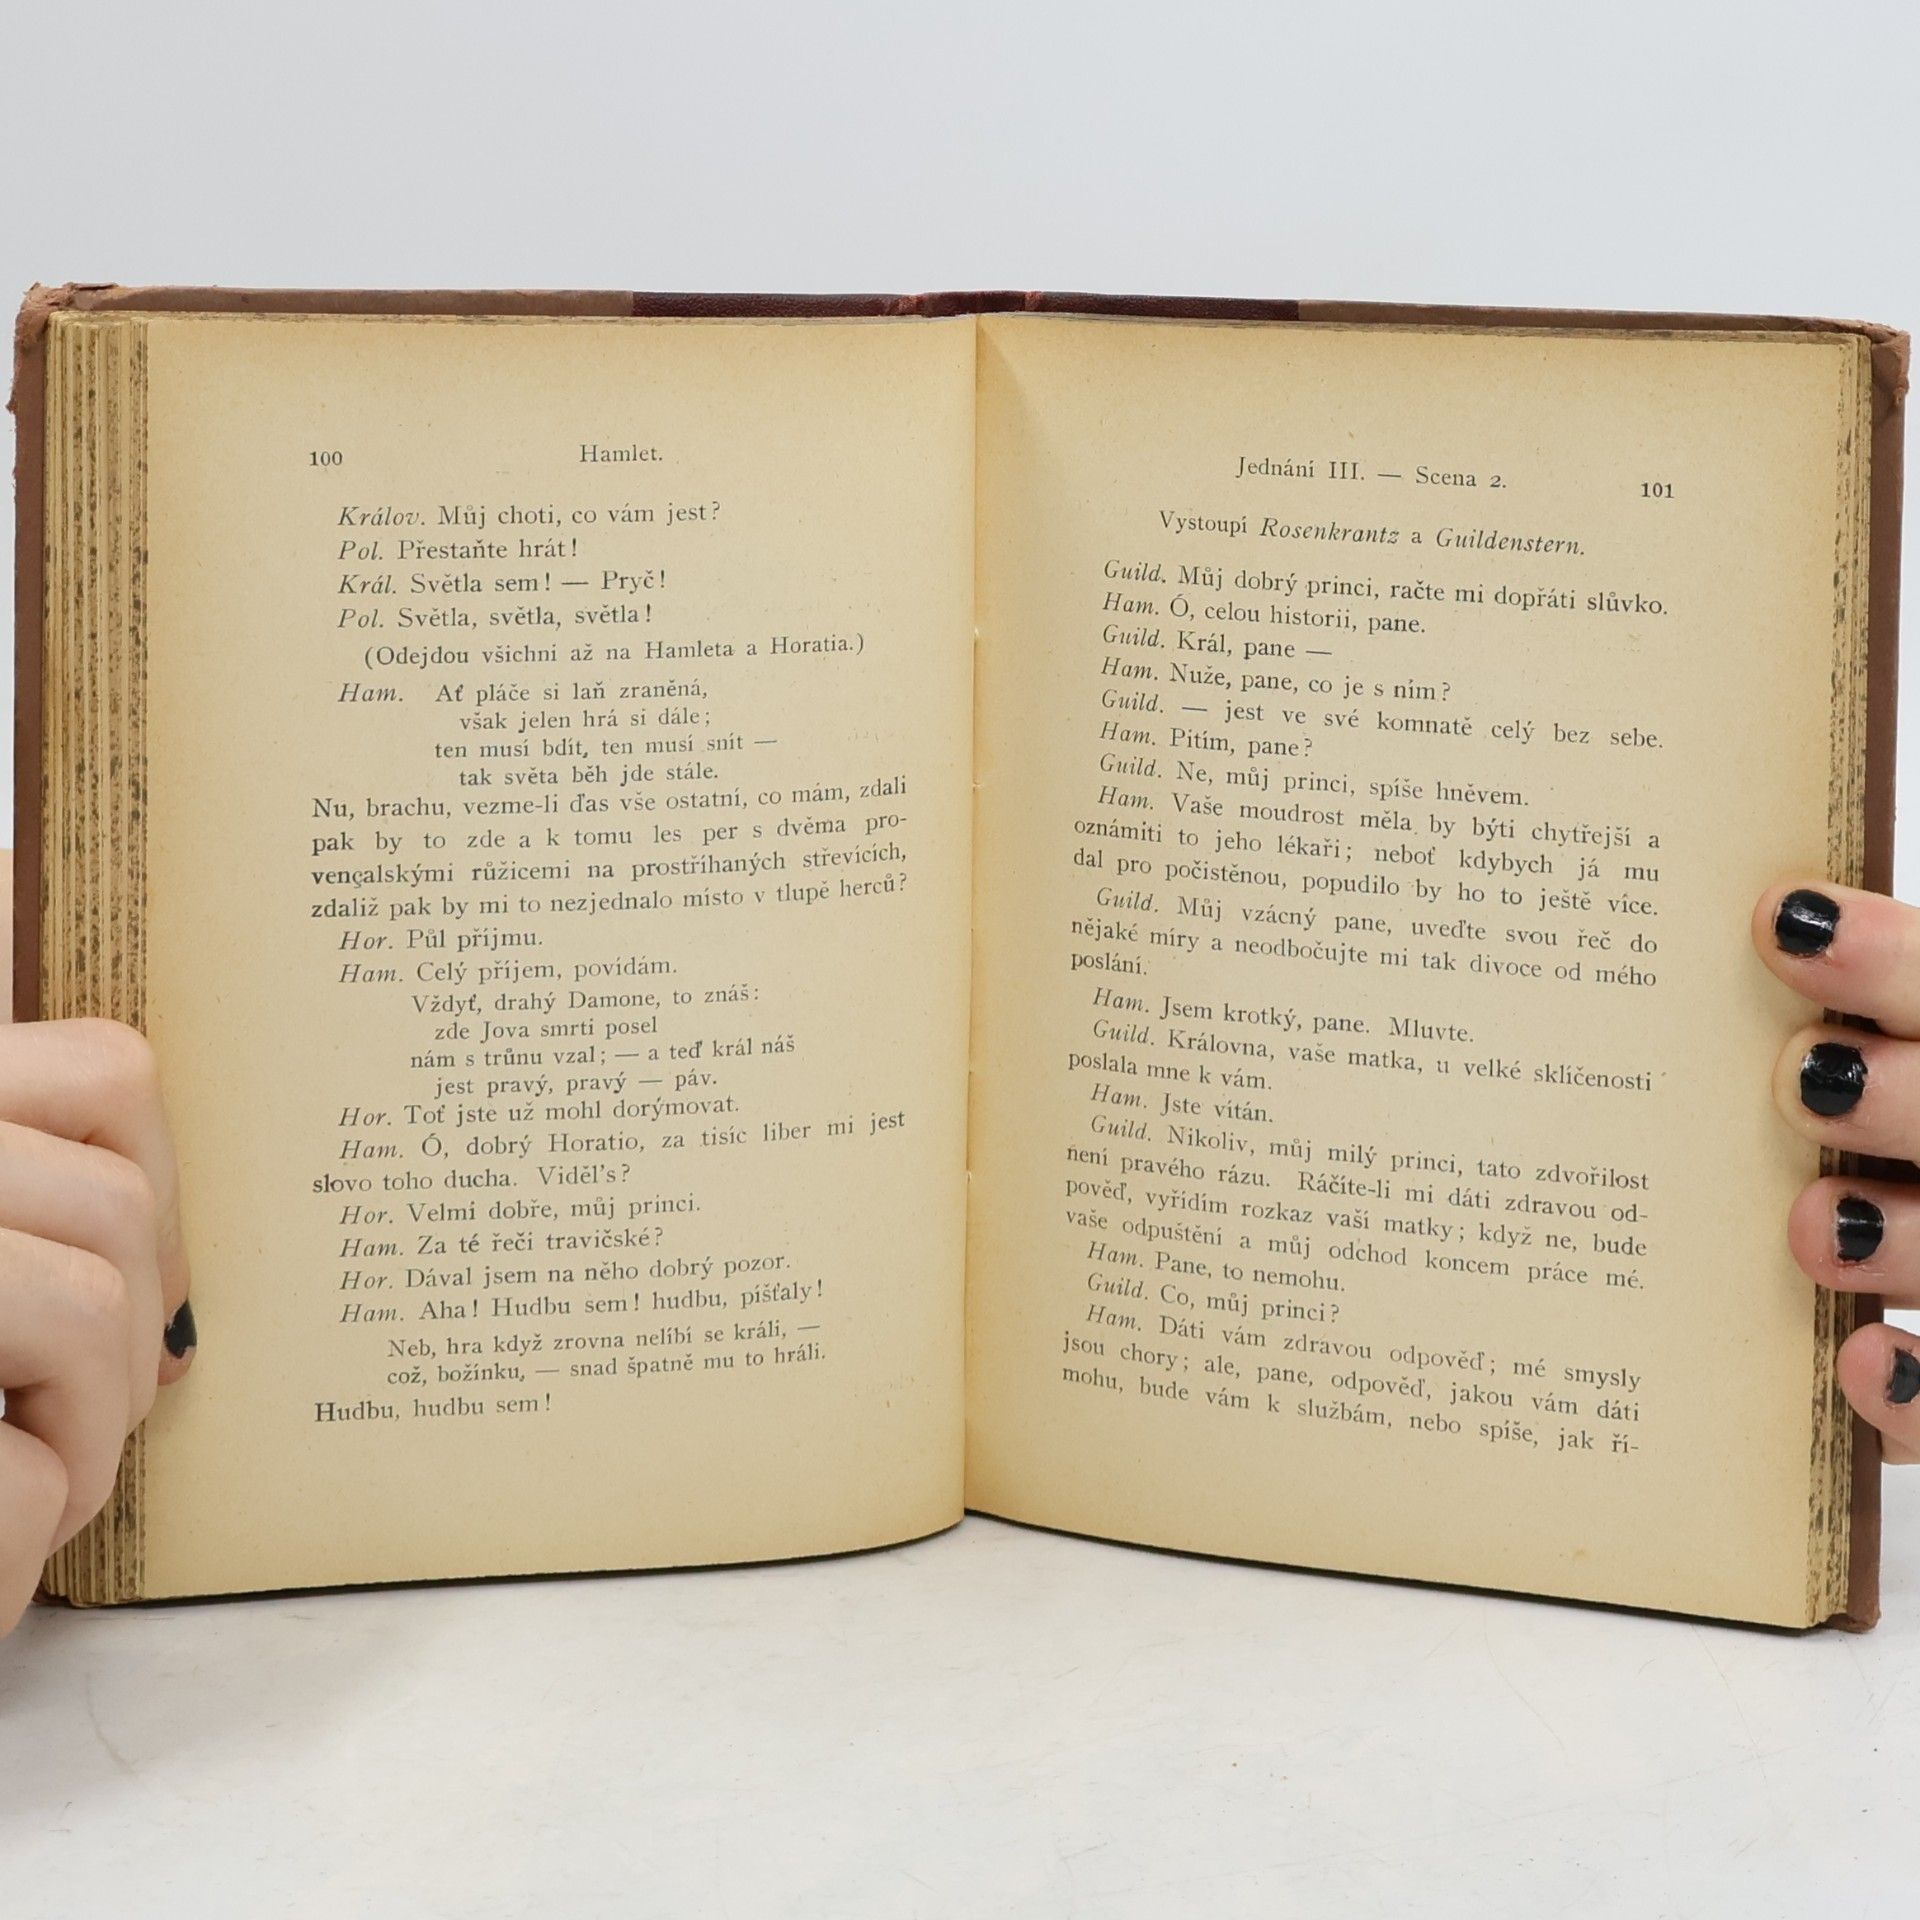 100
Hamlet.
Králov. Můj choti, co vám jest?
Pol. Přestaňte hrát!
Král. Světla sem! — Pryč!
Pol. Světla, světla, světla!
(Odejdou všichni až na Hamleta a Horatia.)
Ham. Ať pláče si laň zraněná,
však jelen hrá si dále;
ten musí bdít, ten musí snít —
tak světa běh jde stále.
Nu, brachu, vezme-li ďas vše ostatní, co mám, zdali
pak by to zde a k tomu les per s dvěma pro-
vençalskými růžicemi na prostříhaných střevících,
zdaliž pak by mi to nezjednalo místo v tlupě herců?
Hor. Půl příjmu.
Ham. Celý příjem, povídám.
Vždyť, drahý Damone, to znáš:
zde Jova smrti posel
nám s trůnu vzal; — a teď král náš
jest pravý, pravý — páv.
Hor. Toť jste už mohl dorýmovat.
Ham. Ó, dobrý Horatio, za tisíc liber mi jest
slovo toho ducha. Viděl's?
Hor. Velmi dobře, můj princi.
Ham. Za té řeči travičské?
Hor. Dával jsem na něho dobrý pozor.
Ham. Aha! Hudbu sem! hudbu, píšťaly!
Neb, hra když zrovna nelíbí se králi, —
což, božínku, — snad špatně mu to hráli.
Hudbu, hudbu sem!
Jednání III. — Scena 2.
101
Vystoupí Rosenkrantz a Guildenstern.
Guild. Můj dobrý princi, račte mi dopřáti slůvko.
Ham. Ó, celou historii, pane.
Guild. Král, pane —
Ham. Nuže, pane, co je s ním?
Guild. — jest ve své komnatě celý bez sebe.
Ham. Pitím, pane?
Guild. Ne, můj princi, spíše hněvem.
Ham. Vaše moudrost měla by býti chytřejší a
oznámiti to jeho lékaři; neboť kdybych já mu
dal pro počistěnou, popudilo by ho to ještě více.
Guild. Můj vzácný pane, uveďte svou řeč do
nějaké míry a neodbočujte mi tak divoce od mého
poslání.
Ham. Jsem krotký, pane. Mluvte.
Guild. Královna, vaše matka, u velké sklíčenosti
poslala mne k vám.
Ham. Jste vítán.
Guild. Nikoliv, můj milý princi, tato zdvořilost
není pravého rázu. Ráčíte-li mi dáti zdravou od-
pověď, vyřídím rozkaz vaší matky; když ne, bude
vaše odpuštění a můj odchod koncem práce mé.
Ham. Pane, to nemohu.
Guild. Co, můj princi?
Ham. Dáti vám zdravou odpověď; mé smysly
jsou chory; ale, pane, odpověď, jakou vám dáti
mohu, bude vám k službám, nebo spíše, jak ří-